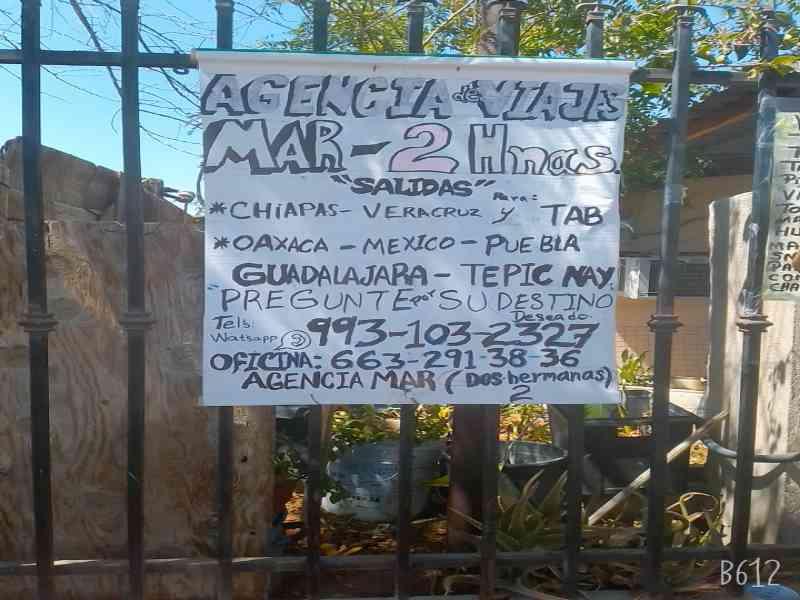 AGENCIA de VIAJAS
MAR-2 Hnas.
"SALIDAS" Para:
*CHIAPAS- VERACRUZ y TAB
*OAXACA - MEXICO - PUEBLA
GUADALAJARA - TEPIC NAY.
"PREGUNTE por SU DESTINO
Deseado.
Tels:
Watsapp 993-103-2327
OFICINA: 663-291-38-36
AGENCIA MAR (Dos hermanas)
2
B612